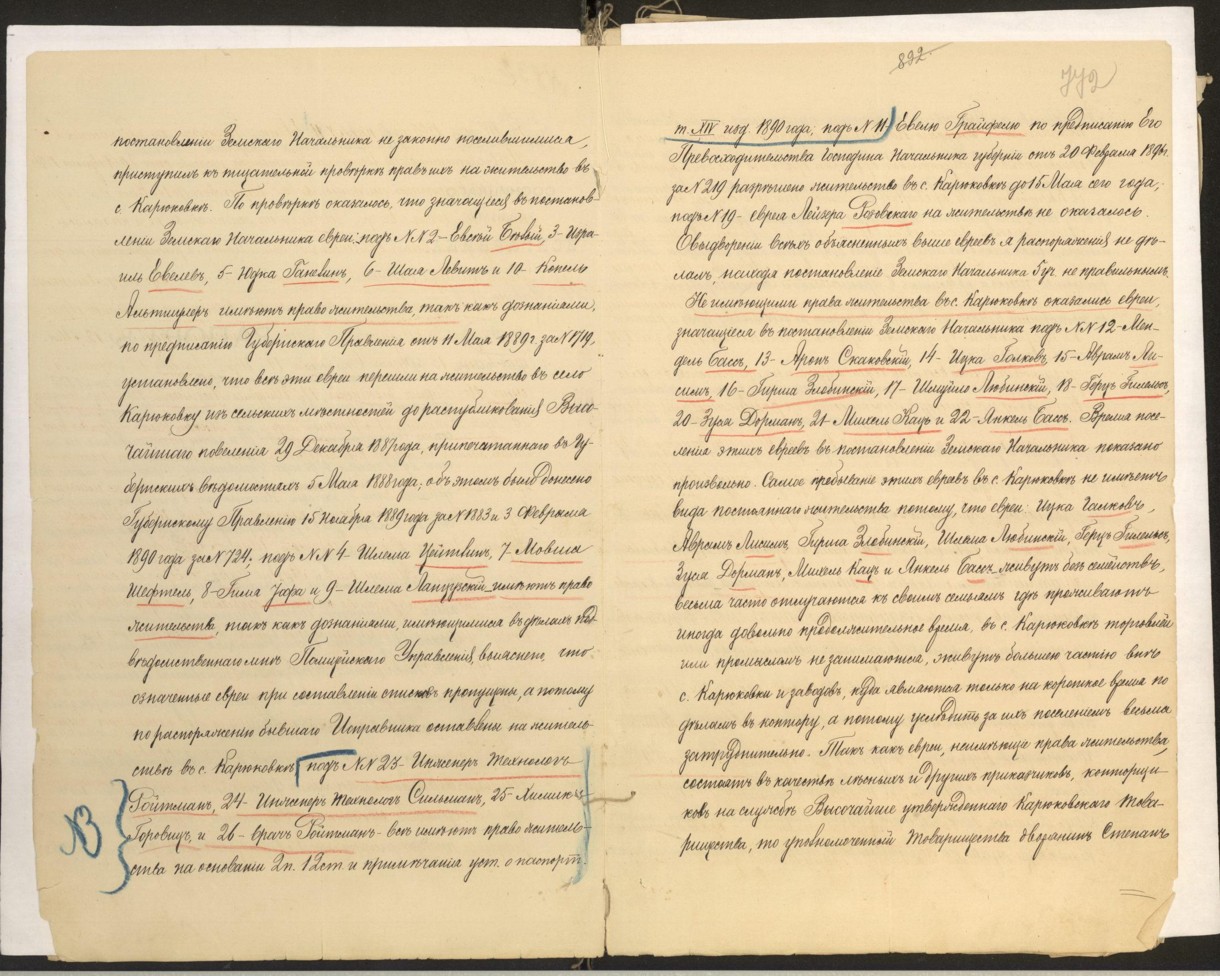 постановленіи Земскаго Начальника не законно поселившимися,
приступилъ къ тщательной провѣркѣ правъ ихъ на жительство въ
с. Карюковкѣ. По провѣркѣ оказалось, что значащіеся въ постанов-
леніи Земскаго Начальника евреи: подъ №№ 2- Евсѣй 3- Изра-
иль Евелевъ, 5- Юдка 6- Шая Левитъ и 10- Копель
Альтшулеръ имѣютъ право жительства, такъ какъ дознаніями,
по предписанію Губернскаго Правленія отъ 11 Мая 1889 г. за № 1719,
установлено, что всѣ эти евреи перешли на жительство въ село
Карюковку изъ сельскихъ мѣстностей до распубликованія Высо-
чайшаго повеленія 29 Декабря 1887 года, припечатаннаго въ Гу-
бернскихъ Вѣдомостяхъ 5 Мая 1888 года; объ этомъ было донесено
Губернскому Правленію 15 Ноября 1889 года за № 1883 и 3 Февраля
1890 года за № 724; подъ №№ 4- Шлема 7- Мовша
Шефтель, 8- Гиля и 9- Шлема имѣютъ право
жительства, такъ какъ дознаніями, имѣющимися въ дѣлахъ под-
вѣдомственнаго мнѣ Полицейскаго Управленія, выяснено, что
означенные евреи при составленіи списковъ пропущены, а потому
по распоряженію бывшаго Исправника оставлены на житель-
ствѣ въ с. Карюковкѣ, подъ №№ 23- Инженеръ Технологъ
Ройтманъ, 24- Инженеръ Технологъ Сильманъ, 25- Химикъ-
Горовицъ, и 26- врачъ Ройтманъ- всѣ имѣютъ право житель-
ства на основаніи 2 п. 12 ст. и примѣчанія уст. о паспорт.
№3
832
772
т. XIV изд. 1890 года; подъ № 11 Евелю Грайферю по предписанію Его
Превосходительства Господина Начальника губерніи отъ 20 Февраля 1896 г.
за № 219 разрѣшено жительство въ с. Карюковкѣ до 15 Мая сего года;
подъ № 19- еврея Лейзера Розовскаго на жительствѣ не оказалось.
О выдвореніи всѣхъ объясненныхъ выше евреевъ я распоряженія не дѣ-
лалъ, находя постановленіе Земскаго Начальника 5 уч. не правильнымъ.
Не имѣющими права жительства въ с. Карюковкѣ оказались евреи,
значащіеся въ постановленіи Земскаго Начальника подъ №№ 12- Мен-
дель Бассъ, 13- Аронъ Скаковскій, 14- Ицка Голковъ, 15- Аврамъ Ли-
симъ, 16- Гирша Злобинскій, 17- Шмуйло Любинскій, 18- Герцъ Гилельсъ,
20- Зуся Дорманъ, 21- Михель Кацъ и 22- Янкель Бассъ. Время посе-
ленія этихъ евреевъ въ постановленіи Земскаго Начальника показано
произвольно. Самое пребываніе этихъ евреевъ въ с. Карюковкѣ не имѣетъ
вида постояннаго жительства потому, что евреи: Ицка Галковъ,
Аврамъ Лисимъ, Гирша Злобинскій, Шлема Любинскій, Герцъ Гилельсъ,
Зуся Дорманъ, Михель Кацъ и Янкель Бассъ живутъ безъ семействъ,
весьма часто отлучаются къ своимъ семьямъ гдѣ проживаютъ
иногда довольно продолжительное время, въ с. Карюковкѣ торговлей
или промысломъ не занимаются, живутъ большею частію внѣ
с. Карюковки и заводовъ, куда являются только на короткое время по
дѣламъ въ контору, а потому услѣдить за ихъ поселеніемъ весьма
затруднительно. Такъ какъ евреи, неимѣющіе права жительства,
состоятъ въ качествѣ лѣсныхъ и другихъ приказчиковъ, конторщи-
ковъ на службѣ Высочайше утвержденнаго Карюковскаго Това-
рищества, то уполномоченный Товарищества дворянинъ Степанъ